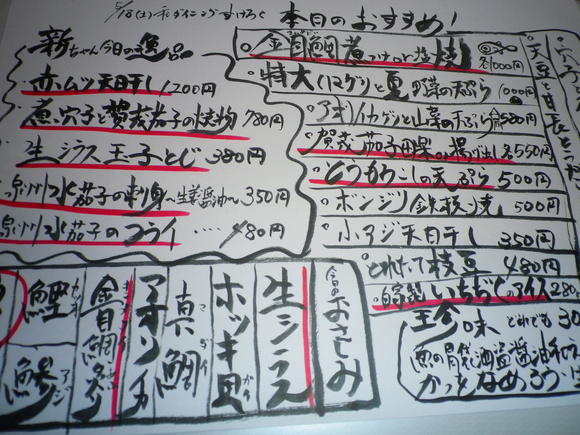 5/18(土)
本日のおすすめ!
新ちゃん今日の逸品
赤ムツ天日干し 1200円
煮穴子と賀茂茄子の焼物 780円
生シラス玉子とじ 380円
泉州水茄子の刺身〜生姜醤油〜 350円
泉州水茄子のフライ ‥‥480円
金目鯛煮つけor塩焼 各1000円
特大ハマグリと夏野菜の天ぷら 1000円
アオリイカゲソと山菜の天ぷら 580円
賀茂茄子田楽or揚げ出し 各550円
とうもろこしの天ぷら 500円
ボンジリ鉄板焼 500円
小アジ天日干し 350円
とれたて枝豆 480円
自家製いちぢくのアイス 280
天豆と甘長とうった
今日のおさしみ
生シラス
ホッキ貝
真鯛 マダイ
アオリイカ
金目鯛炙り
鰹 カツオ
鯵 アジ
珍味 どれでも 30
魚の胃袋酒盗醤油
かつをなめろう